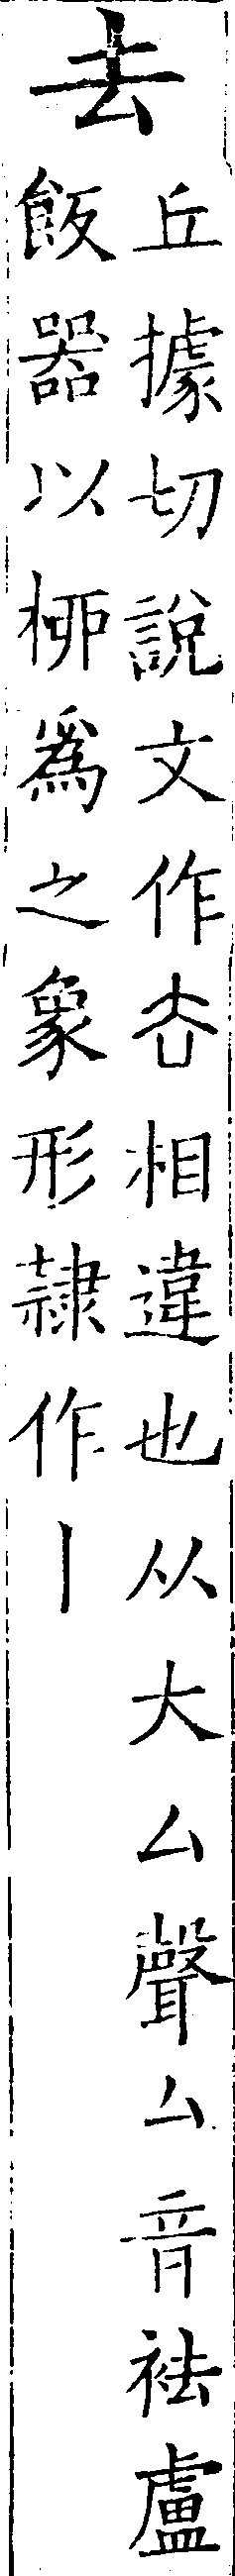 去
丘據切說文作𠫓相違也从大厶聲厶音袪盧
飯器以栁爲之象形隷作丨